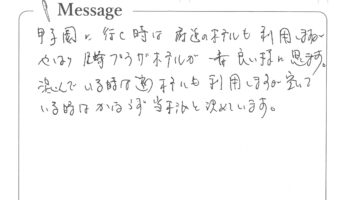 Message
甲子園に行く時は 府近のホテルも 利用しますが
やはり 尼崎プラザホテルが 一番 良い様に 思います。
混んでいる時は 他ホテルも 利用しますが 空いて
いる時は かならず 当ホテルと 決めています。